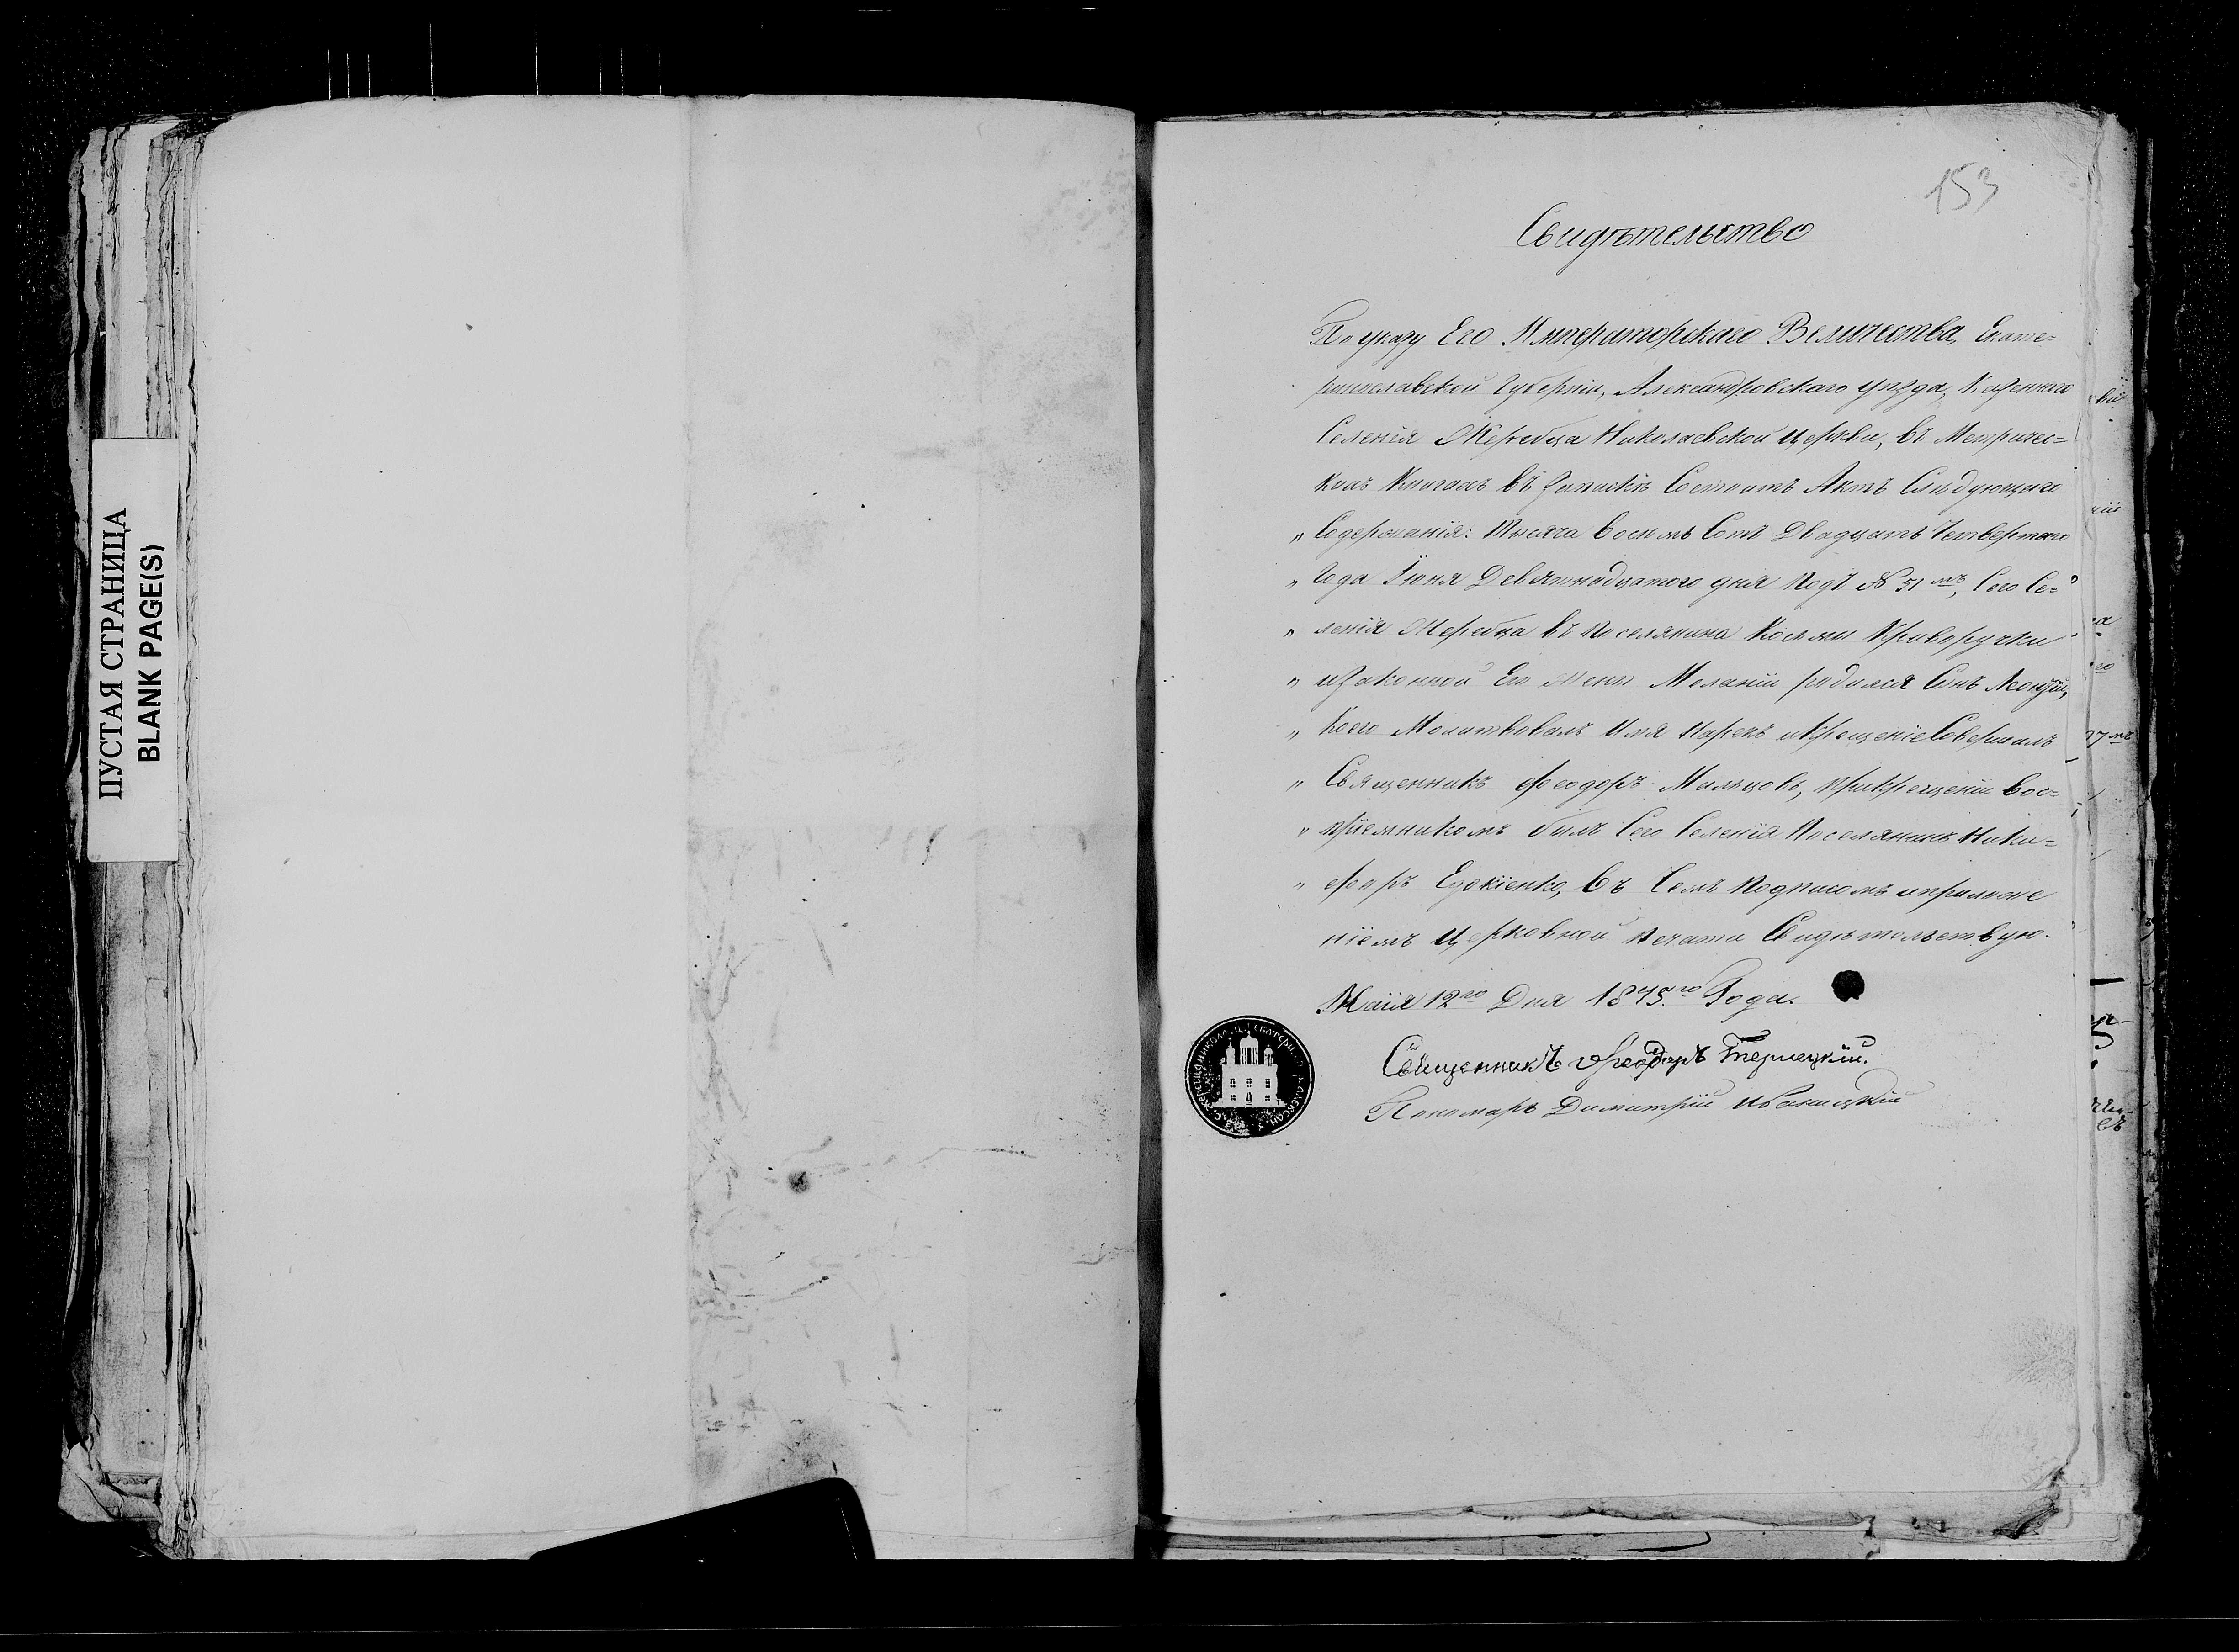 ПУСТАЯ СТРАНИЦА
BLANK PAGE(S)
153
Свидѣтельство
По указу Его Императорскаго Величества, Екате=
ринославской Губерніи, Александровскаго уѣзда, Казеннаго
Селенія Жеребца Николаевской Церкви, въ Метричес=
кихъ Книгахъ въ Запискѣ Состоитъ Актъ Слѣдующаго
„ Содержанія: Тысяча восемъ Сотъ Двадцать Четвертаго
„ Года Іюня Девятнадцатого дня подъ № 51мъ, Сего Се=
„ ленія Жеребца въ поселянина Космы Криворучки
„ изаконной Его Жены Меланіи родился Сынъ Леонтій,
„ Коего Молитвовалъ Имя Нарекъ икрещеніе Совершалъ
„ Священникъ Феодоръ Мальцовъ, прикрещеніи вос=
„ пріемникомъ былъ Сего Селенія Поселянинъ Ники=
„ форъ въ Семъ подписомъ иприложе
ніемъ Церковной печати Свидѣтельствую.
Маія 12го Дня 1845.го Года.
Священникъ Феодоръ Терлецкій.
Пономарь Димитрій Иваницкій